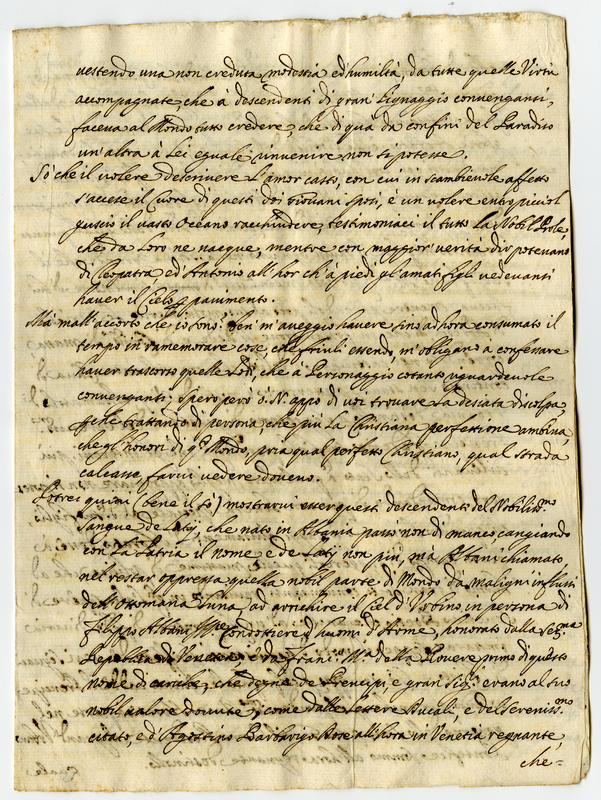 vestendo una non creduta modestia ed humiltà, da tutte quelle Virtù
accompagnate, che à descendenti di gran' Lignaggio convenganti,
faceva al Mondo tutto credere, che di quà da confini del Paradiso
un'altra à Lei eguale invenire non si potesse.
Sò che il volere descrivere l'amor casto, con cui in scambievole affetto
s'accese il Cuore di questi doi Giovani Sposi, è un volere entro picciol
guscio il vasto Oceano racchiudere, testimoniaci il tutto La Nobil Prole,
che da Loro ne nacque, mentre con maggior verità dir potevano
di Cleopatra ed'Antonio all'hor ch'à piedi gl'amati figli vedevanti
haver il Cielo p pavimento.
Mà mall'accorto che io sono! Sen' m'aveggio havere sino ad hora consumato il
tempo in ramemorare cose, che friuli essendo, m'obligano à confessare
haver trascorso quelle Lodi, che à Personaggio cotanto riguardevole
convenganti; Spero però ò N. appo di voi trovare La desiata discolpa,
p che trattando di persona, che più La Christiana perfettione ambiva,
che gl'honori di q.o Mondo, pria qual perfetto Christiano, qual strada
calcasse farvi vedere dovevo.
Potrei quivi (bene il sò) mostrarvi esser questi descendenti del Nobiliss.mo
Sangue de Latij, che nato in Albania passò non di manco cangiando
con La Patria il nome, e de Latij non più, mà Albani chiamato
nel restar oppressa quella nobil parte di Mondo da maligni influssi
dell'Ottomana Luna, ad arrichire il Ciel d'Urbino in persona di
Filippo Albani Condottiere d'huomi d'Arme, honorato dalla Ser.ma
Republica di Venetia, è da Fran.o M.a della Rovere primo di questo
nome di cariche, che degne de Prencipi, e gran Sig.i erano al suo
nobil valore dovute; come dalle Lettere Ducali, e del Sereniss.mo
citato, e d'Agostino Barbarigo Dose all'hora in Venetia regnante,
che=